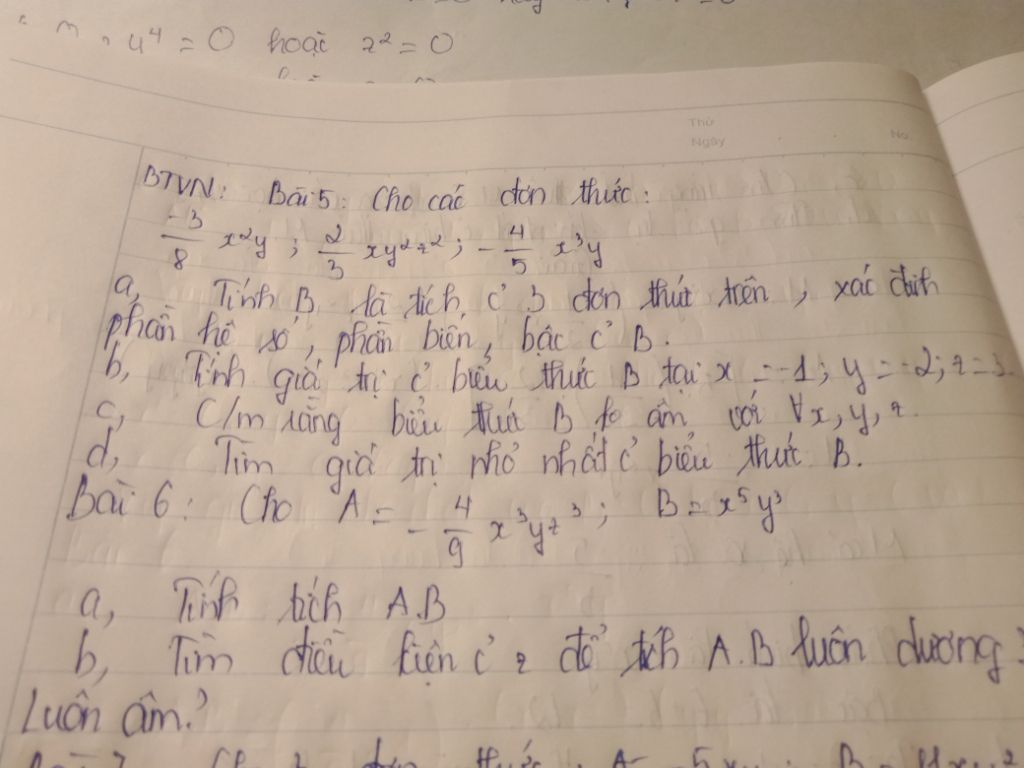 u⁴ = 0 hoặc z² = 0
Thứ
Ngày No.
BTVN: Bài 5: Cho các đơn thức:
-3/8 x²y ; 2/3 xy²z² ; -4/5 x³y
a, Tính B là tích c̉ 3 đơn thức trên, xác định
phần hệ số, phần biến, bậc c̉ B.
b, Tính giá trị c̉ biểu thức B tại x = -1; y = -2; z = 3.
c, C/m rằng biểu thức B ko âm với ∀x, y, z.
d, Tìm giá trị nhỏ nhất c̉ biểu thức B.
Bài 6: Cho A = -4/9 x³yz³; B = x⁵y³
a, Tính tích A.B
b, Tìm điều kiện c̉ z để tích A.B luôn dương?
Luôn âm?